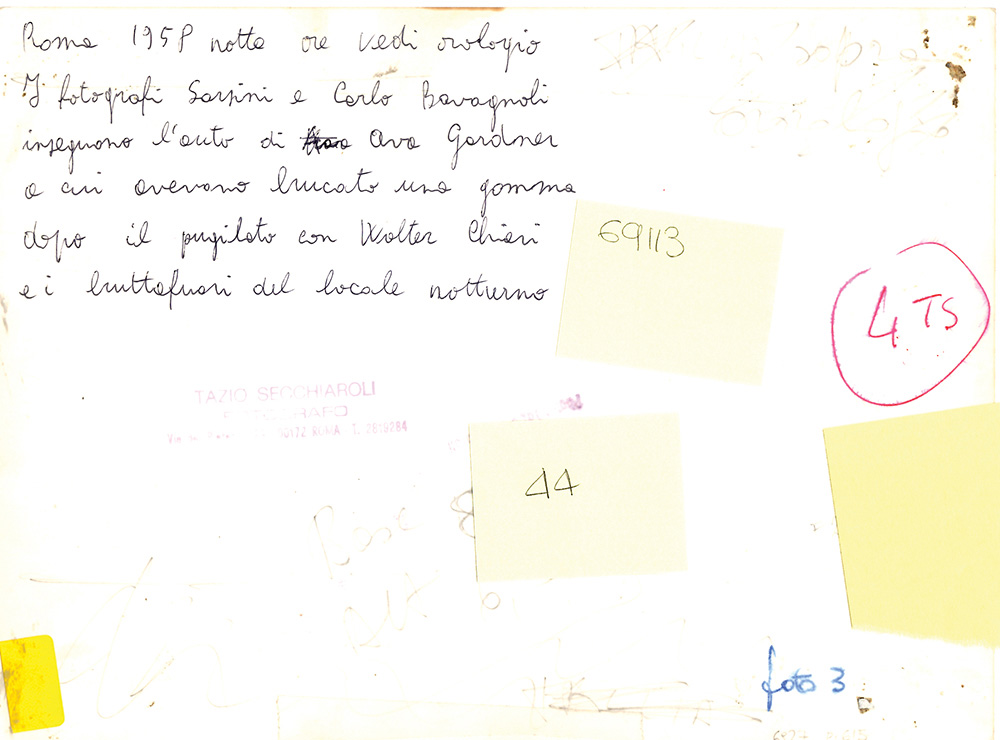 Roma 1958 notte ore vedi orologio
I fotografi Sarsini e Carlo Bavagnoli
inseguono l'auto di Ava Gardner
a cui avevano bucato una gomma
dopo il pugilato con Walter Chiari
e i buttafuori del locale notturno
69113
4 TS
TAZIO SECCHIAROLI
FOTOGRAFO
00172 ROMA T. 2819284
44
foto 3